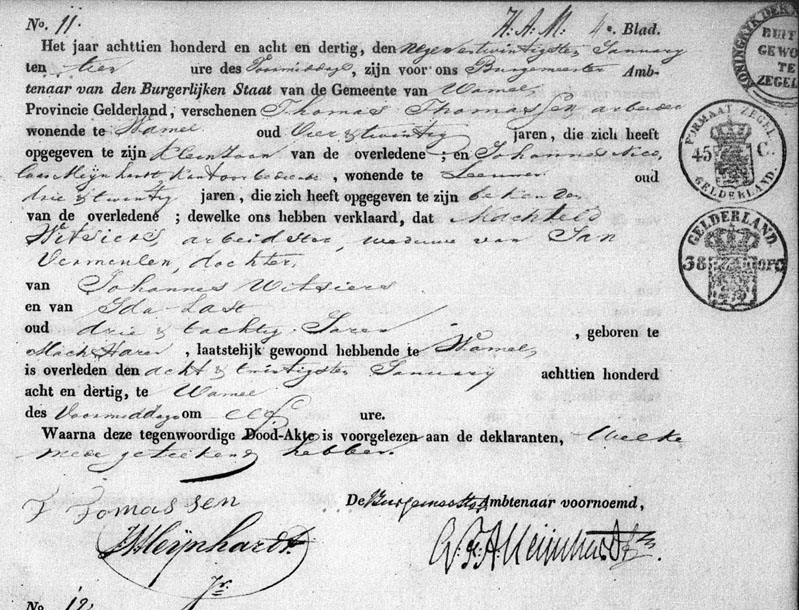 No. 11. H. A. M. 4e. Blad.
Het jaar achttien honderd en acht en dertig, den negenentwintigsten January
ten tien ure des Voormiddags, zijn voor ons Burgemeester Amb-
tenaar van den Burgerlijken Staat van de Gemeente van Wamel,
Provincie Gelderland, verschenen Thomas Thomassen arbeider
wonende te Wamel oud Vier & twintig jaren, die zich heeft
opgegeven te zijn kleinzoon van de overledene ; en Johannes Nico
laas Meijnhardt kantoorbediende, wonende te Leeuwen oud
drie & twintig jaren, die zich heeft opgegeven te zijn bekende
van de overledene ; dewelke ons hebben verklaard, dat Machteld
Witsiers, arbeidster, weduwe van Jan
Vermeulen, dochter,
van Johannes Witsiers
en van Ida Last
oud drie & tachtig Jaren , geboren te
Maas Haren , laatstelijk gewoond hebbende te Wamel,
is overleden den acht & twintigsten January achttien honderd
acht en dertig, te Wamel
des Voormiddags om elf ure.
Waarna deze tegenwoordige Dood-Akte is voorgelezen aan de deklaranten, Welke
mede getekend hebben.
T Tomassen
De Burgemeester Ambtenaar voornoemd,
Meijnhardt
Jr
No. 12.
KONINGRYK DER
BUIT
GEWO
TE
ZEGEL
FORMAAT ZEGEL
45 C.
GELDERLAND.
GELDERLAND.
38 OPC